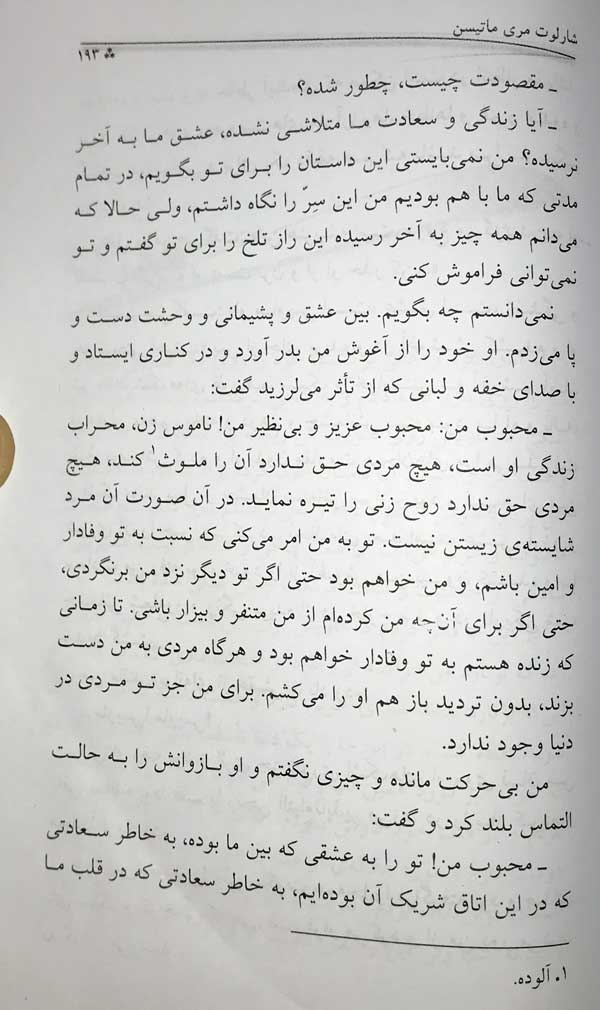 شارلوت مری ماتیسن
۱۹۳
ـ مقصودت چیست، چطور شده؟
ـ آیا زندگی و سعادت ما متلاشی نشده، عشق ما به آخر
نرسیده؟ من نمی‌بایستی این داستان را برای تو بگویم، در تمام
مدتی که ما با هم بودیم من این سِرّ را نگاه داشتم، ولی حالا که
می‌دانم همه چیز به آخر رسیده این راز تلخ را برای تو گفتم و تو
نمی‌توانی فراموش کنی.
نمی‌دانستم چه بگویم. بین عشق و پشیمانی و وحشت دست و
پا می‌زدم. او خود را از آغوش من بدر آورد و در کناری ایستاد و
با صدای خفه و لبانی که از تأثر می‌لرزید گفت:
ـ محبوب من: محبوب عزیز و بی‌نظیر من! ناموس زن، محراب
زندگی او است، هیچ مردی حق ندارد آن را ملوث۱ کند، هیچ
مردی حق ندارد روح زنی را تیره نماید. در آن صورت آن مرد
شایسته‌ی زیستن نیست. تو به من امر می‌کنی که نسبت به تو وفادار
و امین باشم، و من خواهم بود حتی اگر تو دیگر نزد من برنگردی،
حتی اگر برای آن‌چه من کرده‌ام از من متنفر و بیزار باشی. تا زمانی
که زنده هستم به تو وفادار خواهم بود و هرگاه مردی به من دست
بزند، بدون تردید باز هم او را می‌کشم. برای من جز تو مردی در
دنیا وجود ندارد.
من بی‌حرکت مانده و چیزی نگفتم و او بازوانش را به حالت
التماس بلند کرد و گفت:
ـ محبوب من! تو را به عشقی که بین ما بوده، به خاطر سعادتی
که در این اتاق شریک آن بوده‌ایم، به خاطر سعادتی که در قلب ما
۱. آلوده.